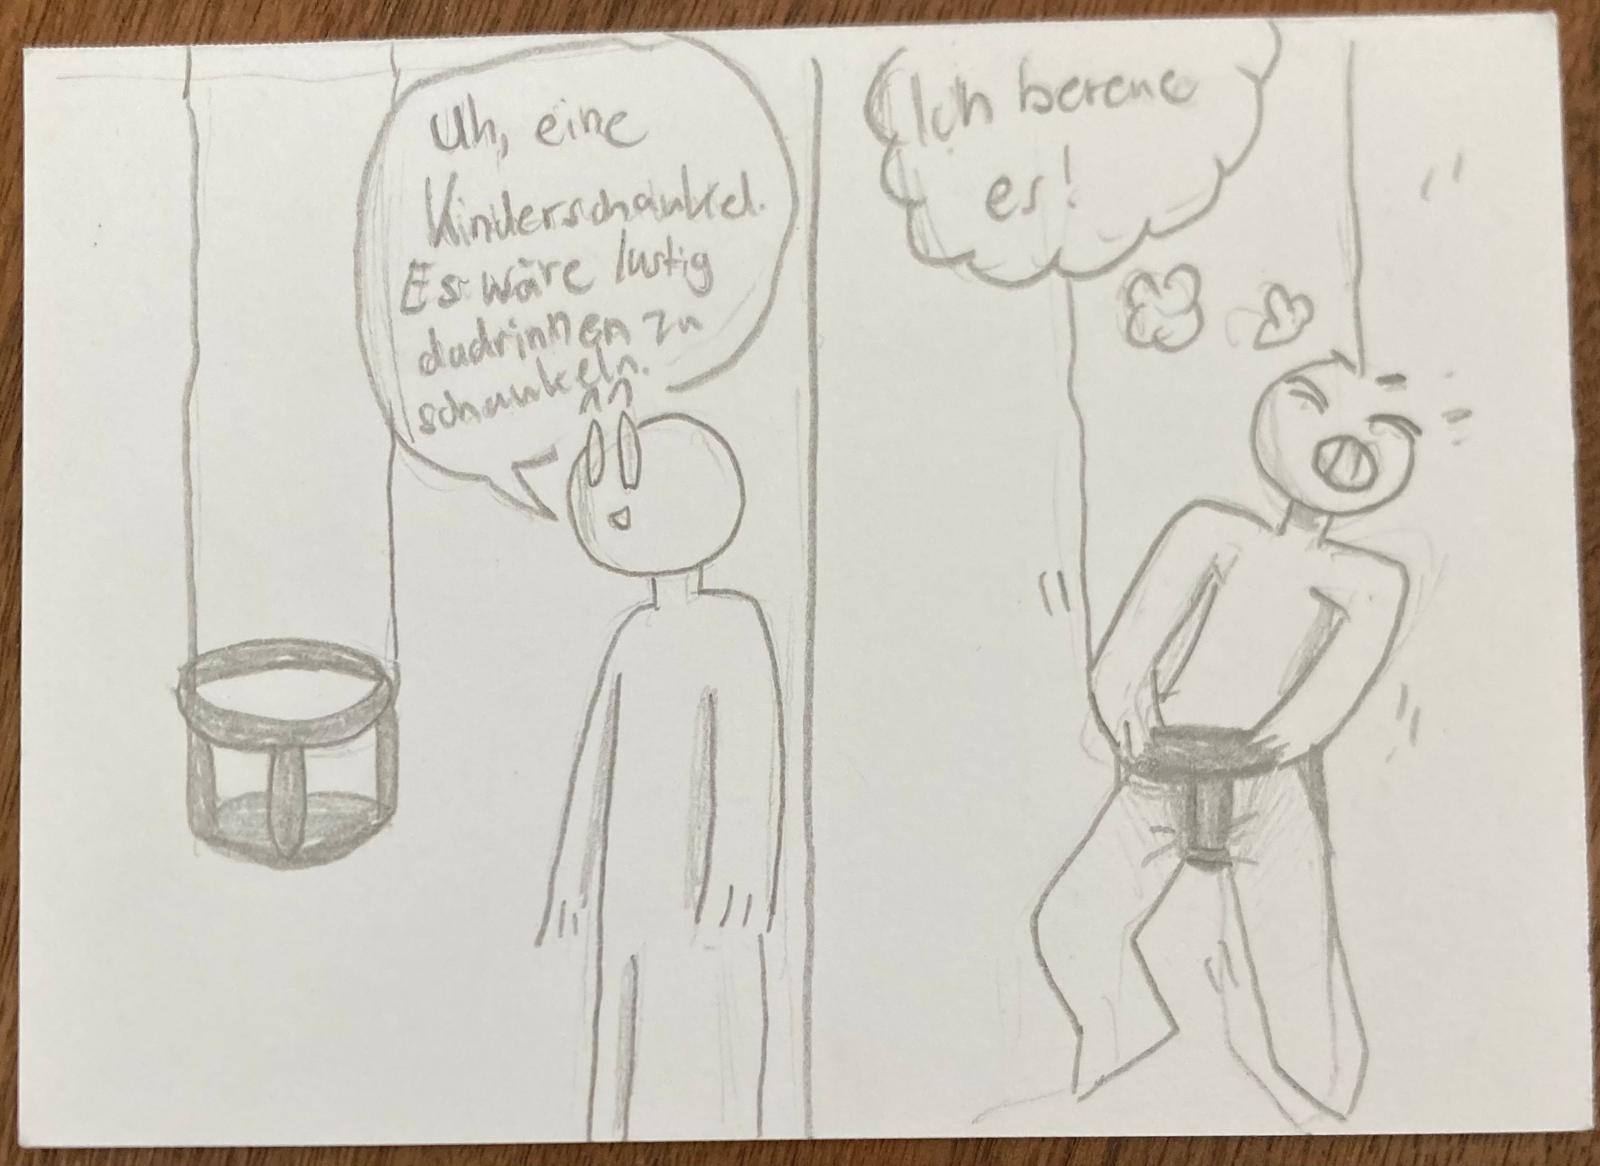 Uh, eine
Kinderschaukel.
Es wäre lustig
dadrinnen zu
schaukeln.
Ich bereue
es!